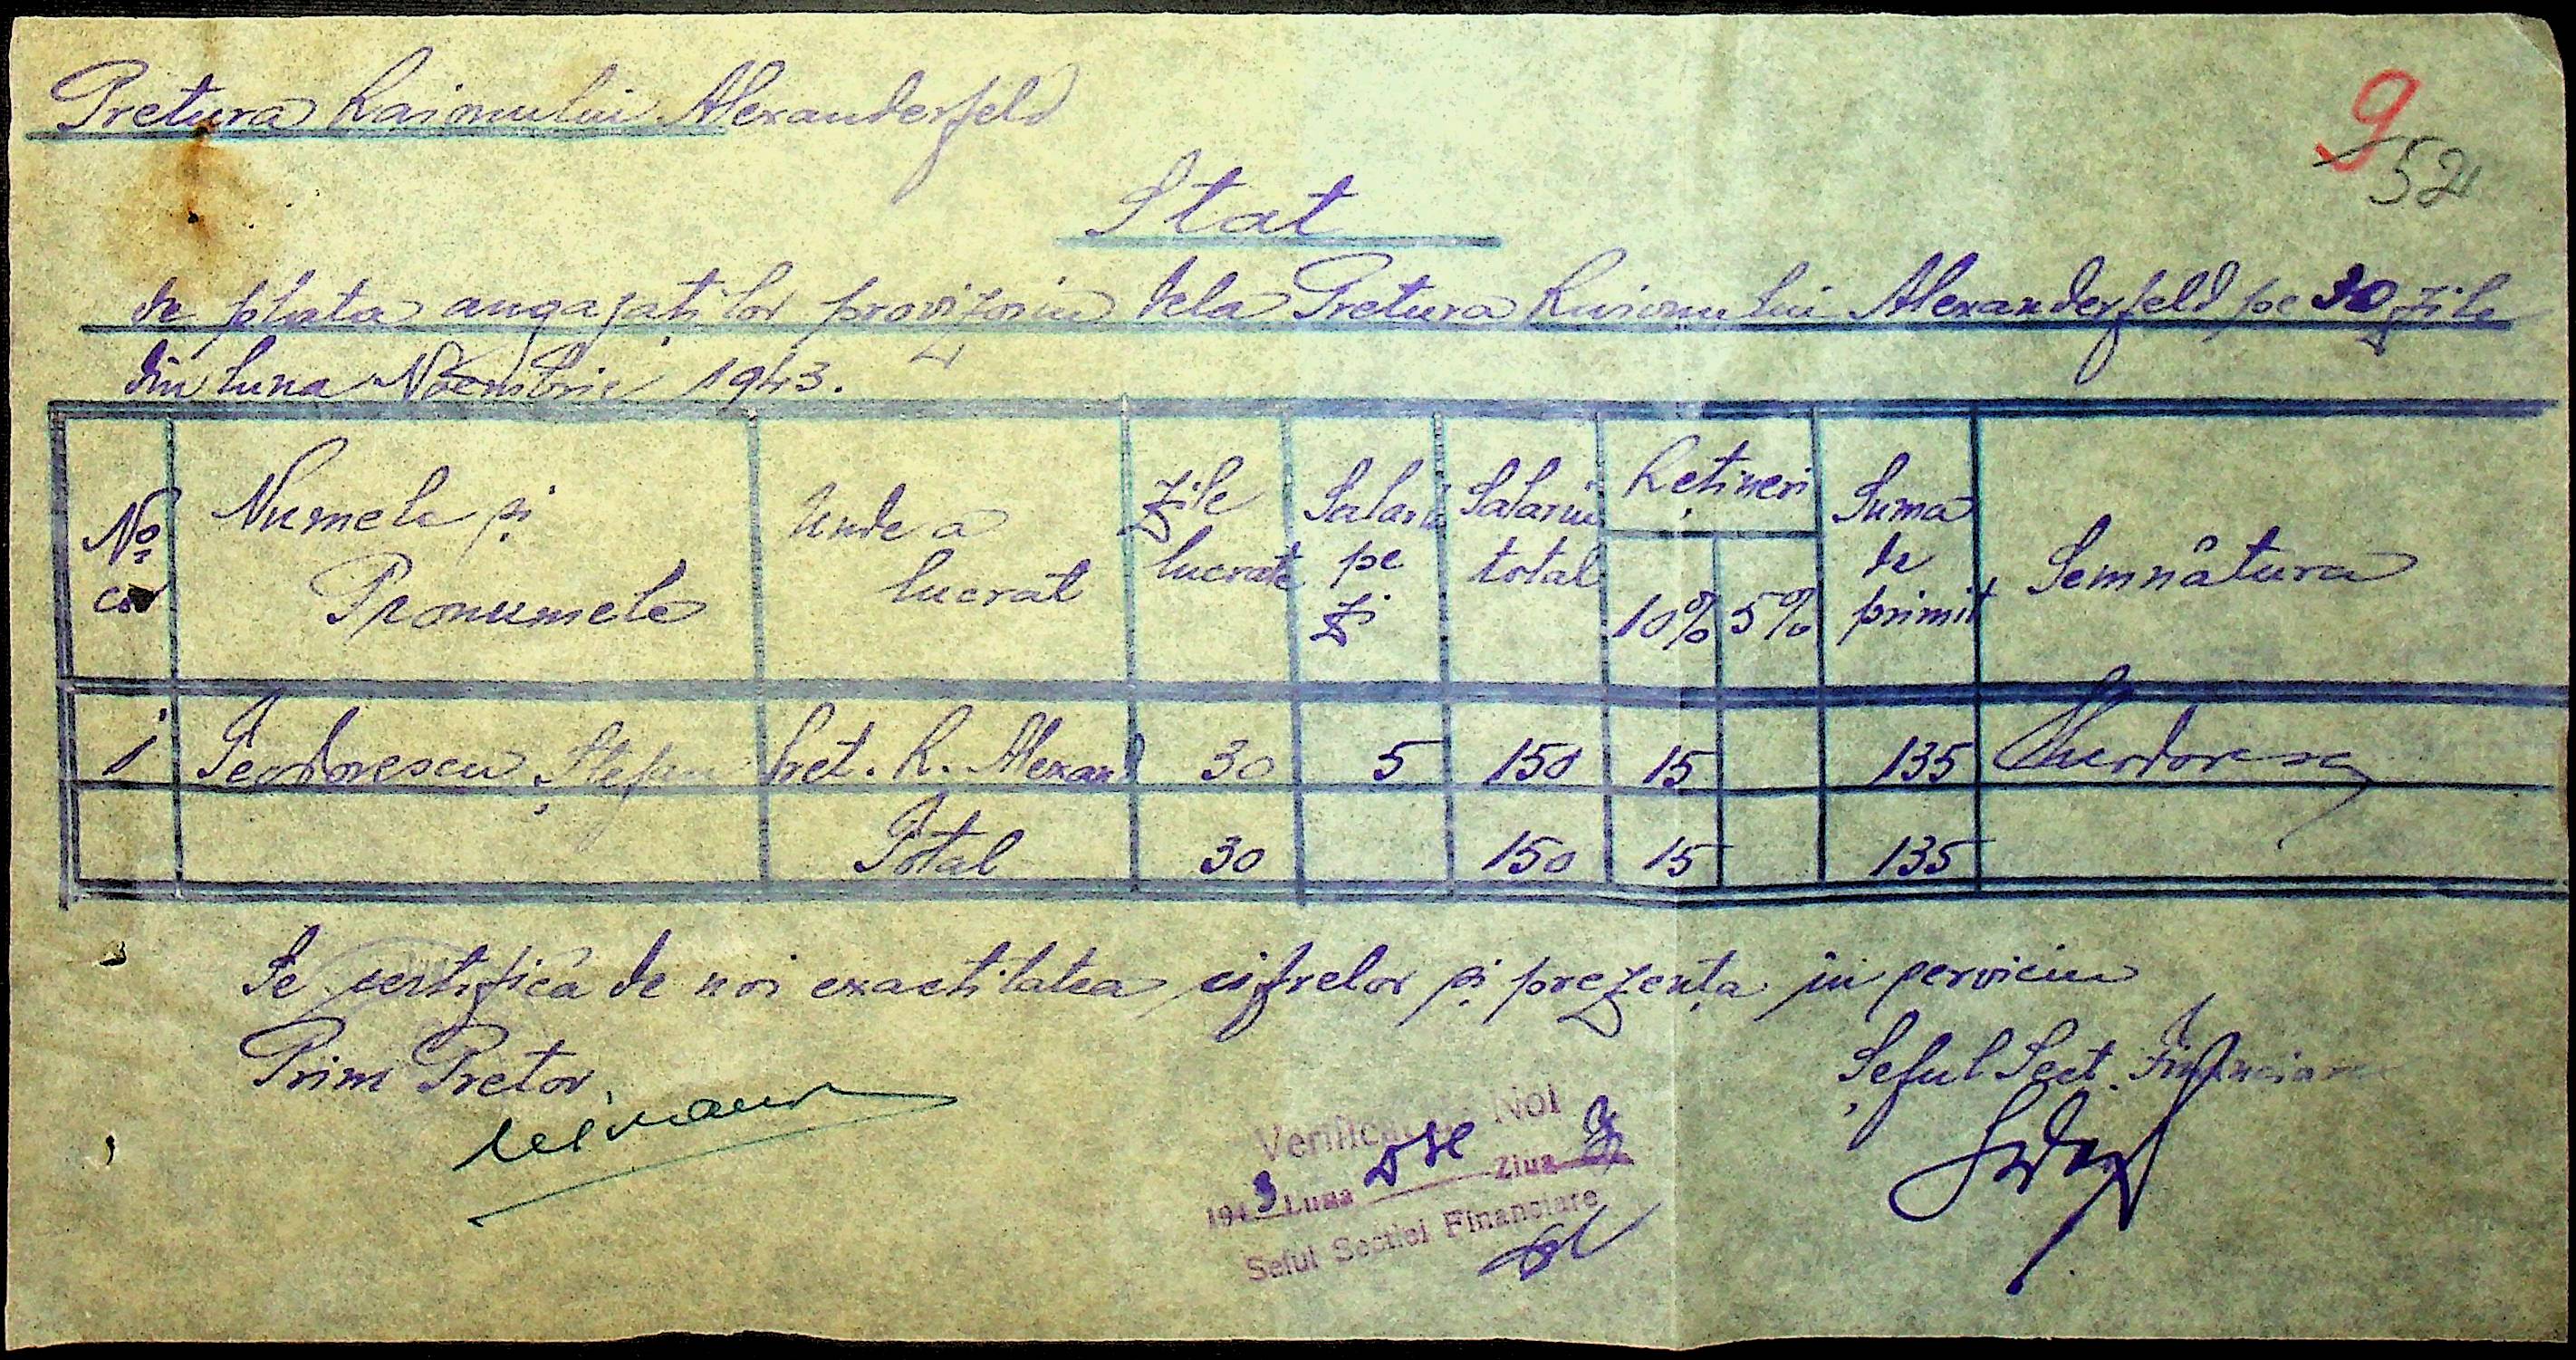 Pretura Raionului Alexanderfeld
9
52
Stat
de plata angajaților provizoriu dela Pretura Raionului Alexanderfeld pe 30 zile
din luna Noembrie 1943.
No cor | Numele și Pronumele | Unde a lucrat | Zile lucrate | Salariu pe zi | Salariu total | Rețineri 10% 5% | Suma de primit | Semnătura
1 | Teodorescu Ștefan | Pret. R. Alexand | 30 | 5 | 150 | 15 | 135 | Theodorescu
Total | 30 | 150 | 15 | 135
Se certifică de noi exactitatea cifrelor și prezența în serviciu
Prim Pretor
Șeful Sect. Financiare
Verificat de Noi
1943 Luna Dse Ziua
Seful Sectiei Financiare